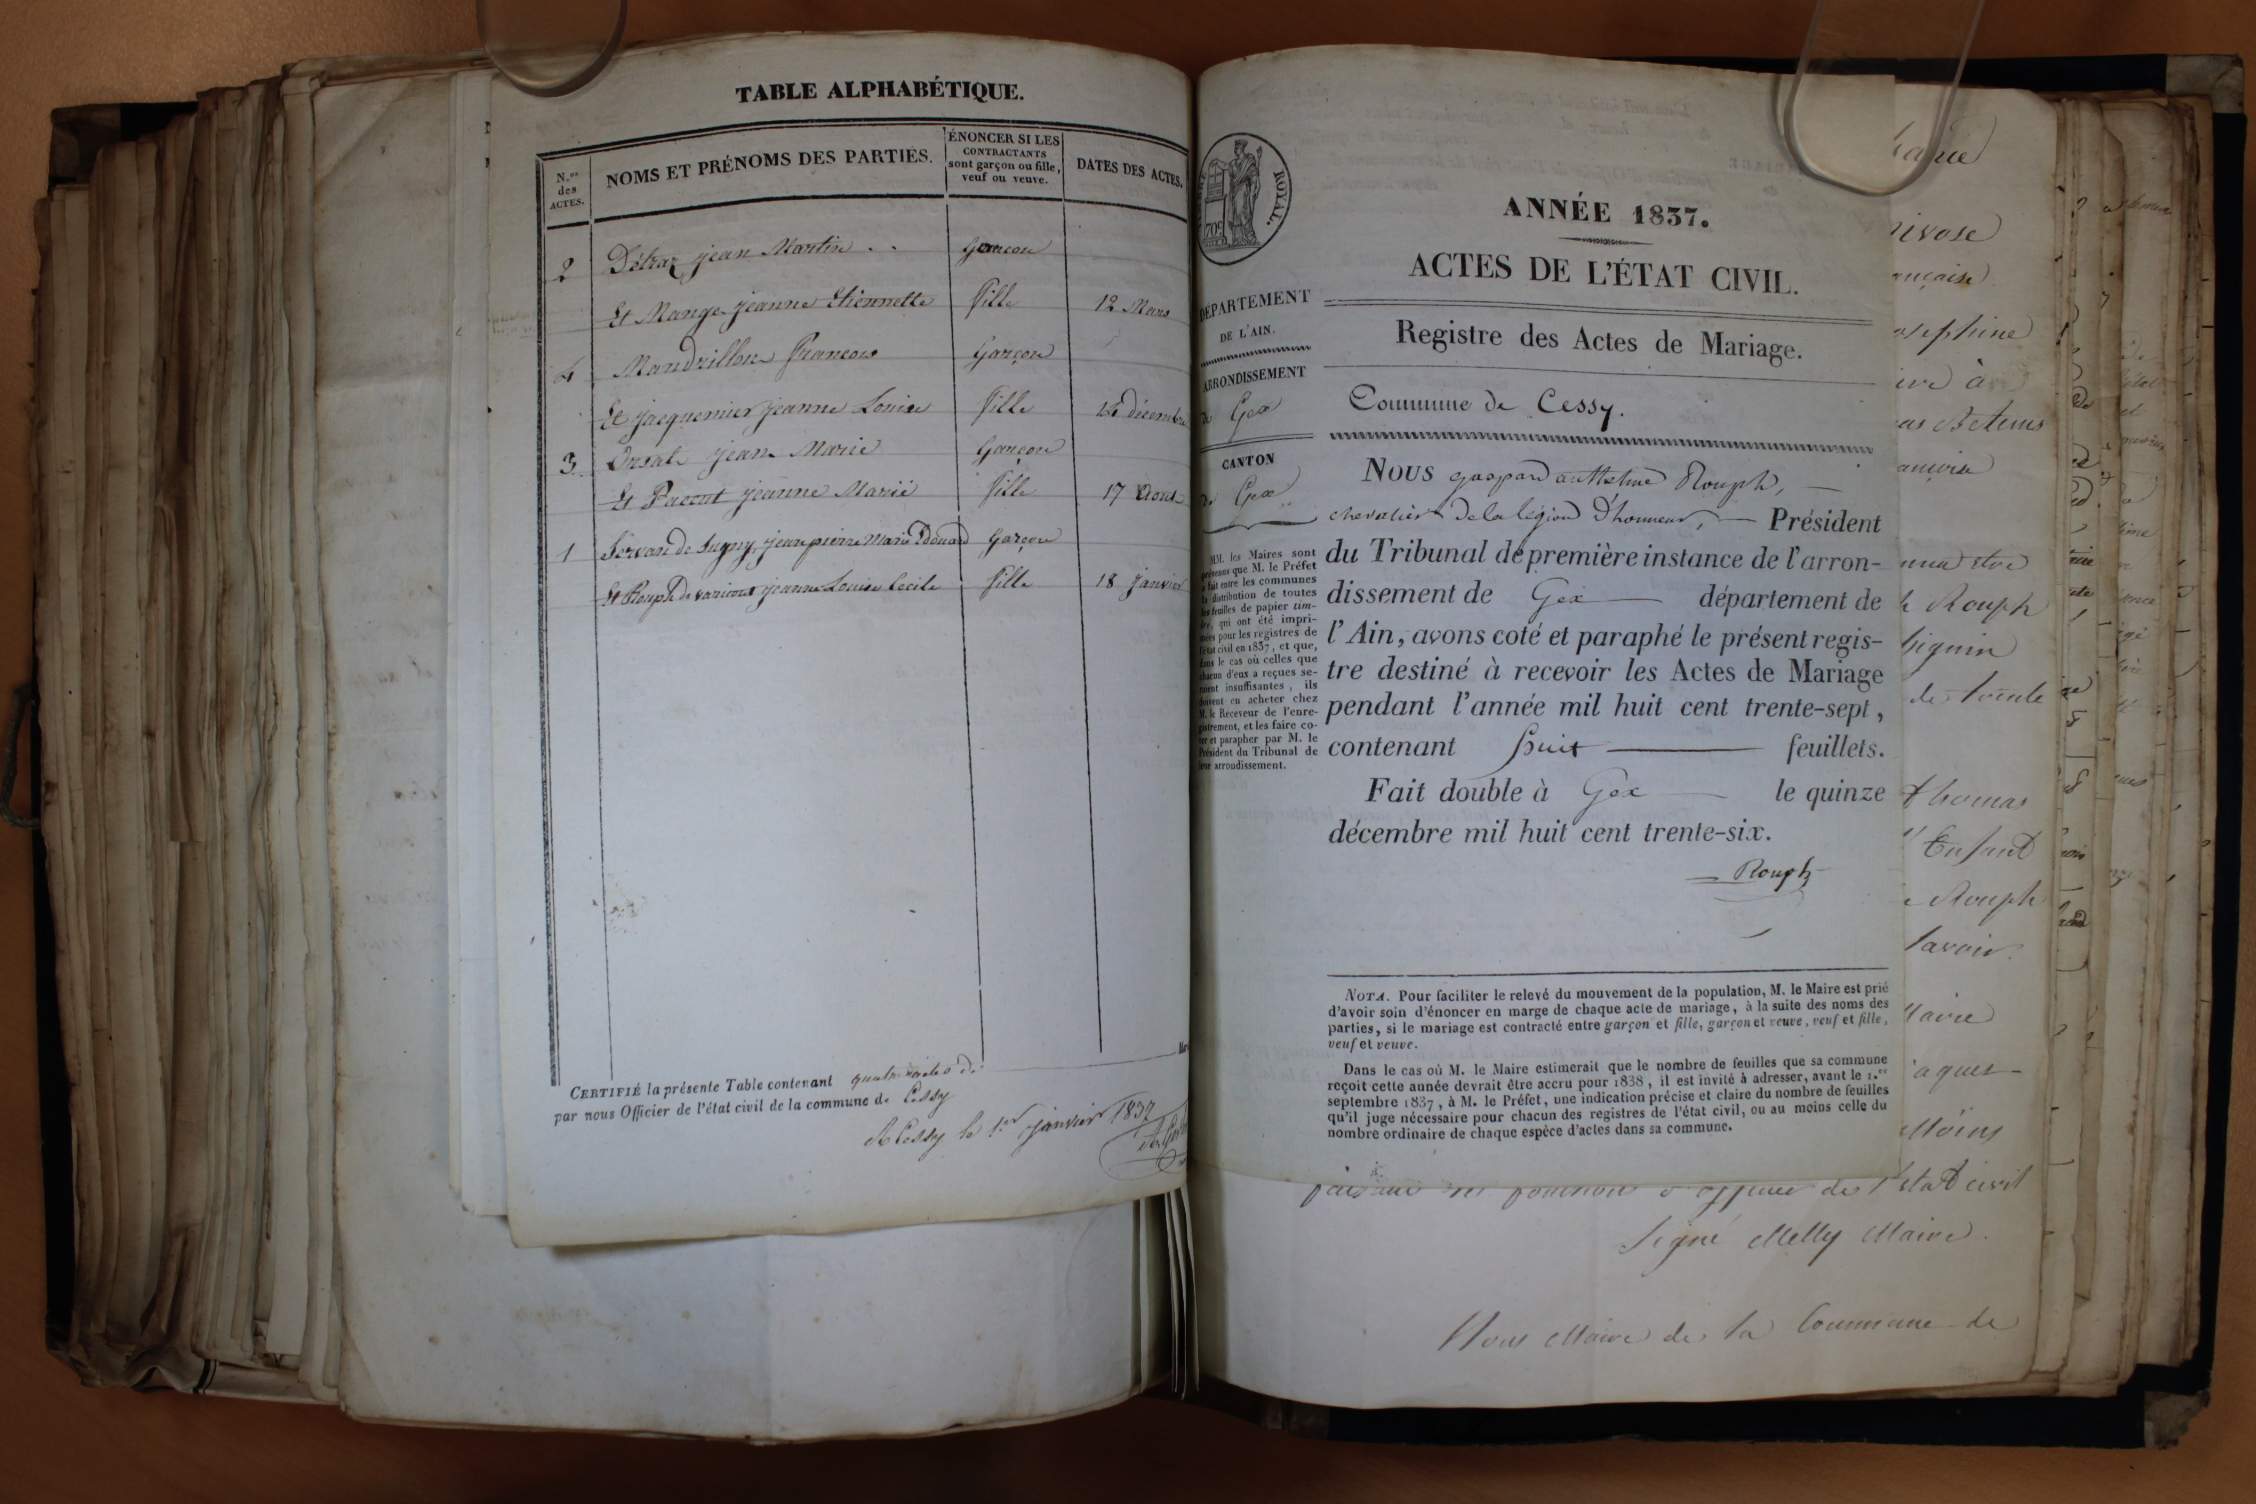 TABLE ALPHABÉTIQUE.
N.os des ACTES.
NOMS ET PRÉNOMS DES PARTIES.
ÉNONCER SI LES
CONTRACTANTS
sont garçon ou fille,
veuf ou veuve.
DATES DES ACTES.
2 Détraz jean Martin . . Garcon
Et Mange jeanne Etiennette fille 12 Mars
4 Mandrillon francois Garçon
Et jacquemier jeanne Louise fille décembre
3 Orsat jean Marie Garçon
Et Paccut jeanne Marie fille 17 Aout
1 Servan de Sugny, jean pierre Marie Edouard Garçon
Et Rouph de varicourt jeanne Louise Cecile fille 18 janvier
CERTIFIÉ la présente Table contenant quatre
par nous Officier de l'état civil de la commune de Cessy
A Cessy le 1er janvier 1837
TIMBRE ROYAL.
ANNÉE 1837.
ACTES DE L'ÉTAT CIVIL.
Registre des Actes de Mariage.
Commune de Cessy.
DÉPARTEMENT
DE L'AIN.
ARRONDISSEMENT
de Gex
CANTON
de Gex
MM. les Maires sont
prévenus que M. le Préfet
a fait entre les communes
la distribution de toutes
les feuilles de papier tim-
bré, qui ont été impri-
mées pour les registres de
l'état civil en 1837, et que,
dans le cas où celles que
chacun d'eux a reçues se-
raient insuffisantes, ils
doivent en acheter chez
M. le Receveur de l'enre-
gistrement, et les faire co-
ter et parapher par M. le
Président du Tribunal de
leur arrondissement.
NOUS gaspard anthelme Rouph,
chevalier de la légion d'honneur, Président
du Tribunal de première instance de l'arron-
dissement de Gex département de
l'Ain, avons coté et paraphé le présent regis-
tre destiné à recevoir les Actes de Mariage
pendant l'année mil huit cent trente-sept,
contenant huit feuillets.
Fait double à Gex le quinze
décembre mil huit cent trente-six.
Rouph
NOTA. Pour faciliter le relevé du mouvement de la population, M. le Maire est prié
d'avoir soin d'énoncer en marge de chaque acte de mariage, à la suite des noms des
parties, si le mariage est contracté entre garçon et fille, garçon et veuve, veuf et fille,
veuf et veuve.
Dans le cas où M. le Maire estimerait que le nombre de feuilles que sa commune
reçoit cette année devrait être accru pour 1838, il est invité à adresser, avant le 1.er
septembre 1837, à M. le Préfet, une indication précise et claire du nombre de feuilles
qu'il juge nécessaire pour chacun des registres de l'état civil, ou au moins celle du
nombre ordinaire de chaque espèce d'actes dans sa commune.
Rouph
de
thomas
Enfant
Rouph
Savoir.
faisant les fonctions d'officier de l'état civil
Signé Melly Maire.
Nous Maire de la Commune de